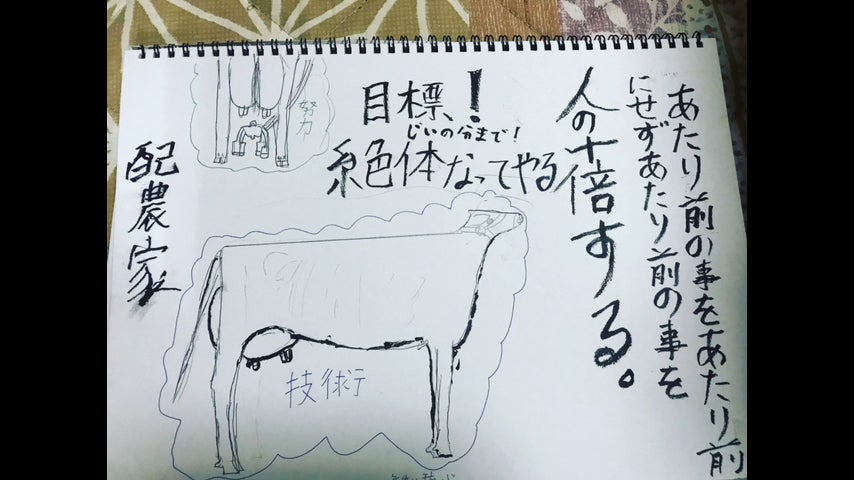 あたり前の事をあたり前
にせずあたり前の事を
人の十倍する。
目標、!
じいの分まで!
絶体なってやる
努力
配農家
技術行